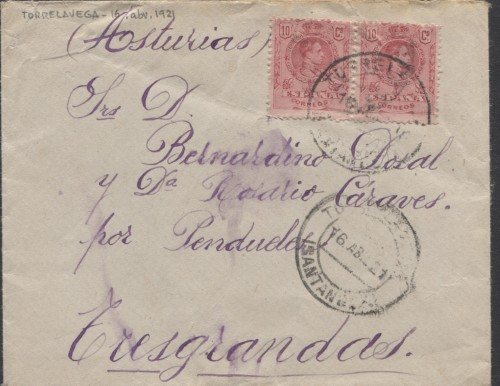 TORRELAVEGA - 16 abr. 1921
(Asturias)
10 Cs 10 Cs
CORREOS CORREOS
TORRELA
Srs D.
Bernardino Dosal
y Dª Rosario Caraves.
por Pendueles
16 ABR 21
(SANTANDE
Tresgrandas.